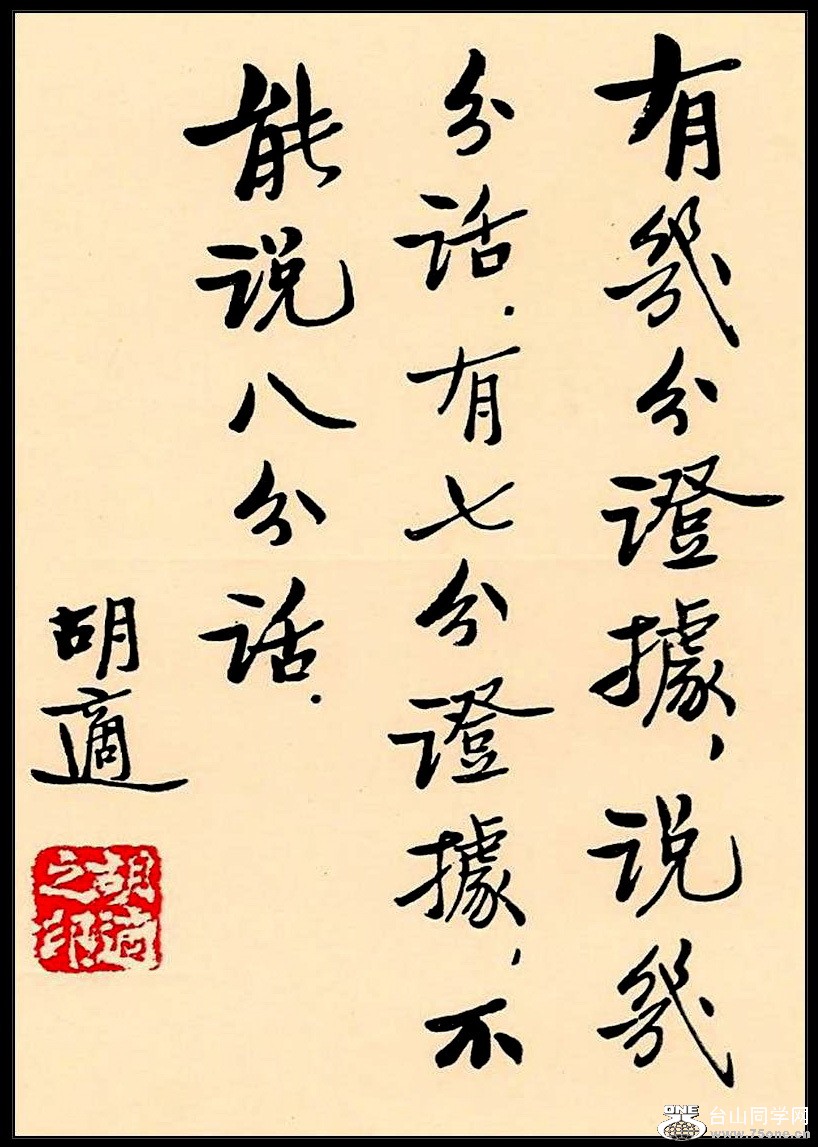 有幾分證據，说幾
分话．有七分證據，不
能说八分话．
胡適
胡適之印
ONE 台山同学网
www.75one.cn